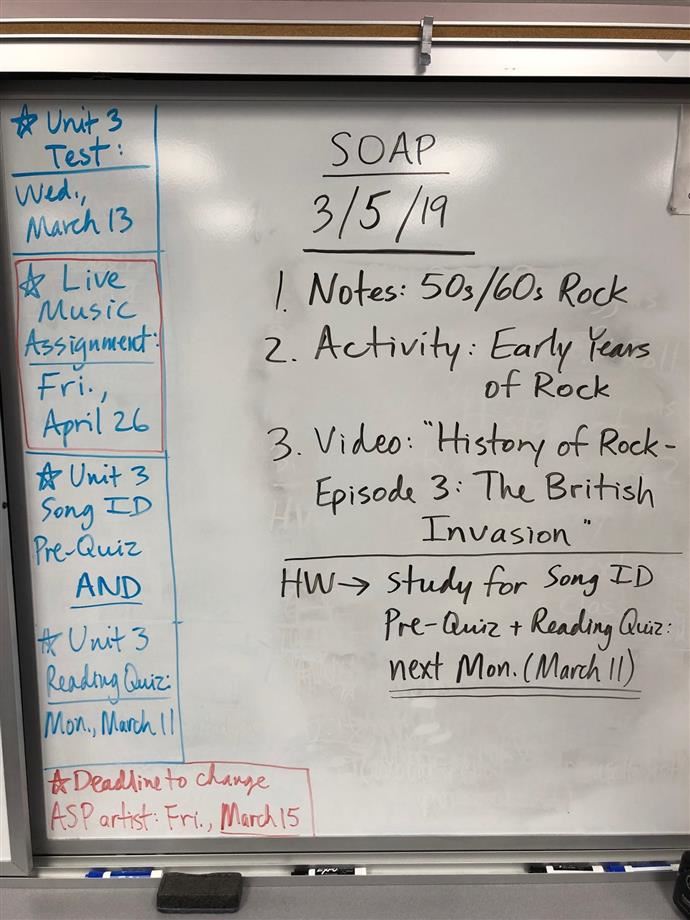 ☆ Unit 3
Test:
Wed.,
March 13
☆ Live
Music
Assignment:
Fri.,
April 26
☆ Unit 3
Song ID
Pre-Quiz
AND
☆ Unit 3
Reading Quiz:
Mon., March 11
☆ Deadline to change
ASP artist: Fri., March 15
SOAP
3/5/19
1. Notes: 50s/60s Rock
2. Activity: Early Years
of Rock
3. Video: "History of Rock-
Episode 3: The British
Invasion"
HW→ study for Song ID
Pre-Quiz + Reading Quiz:
next Mon. (March 11)